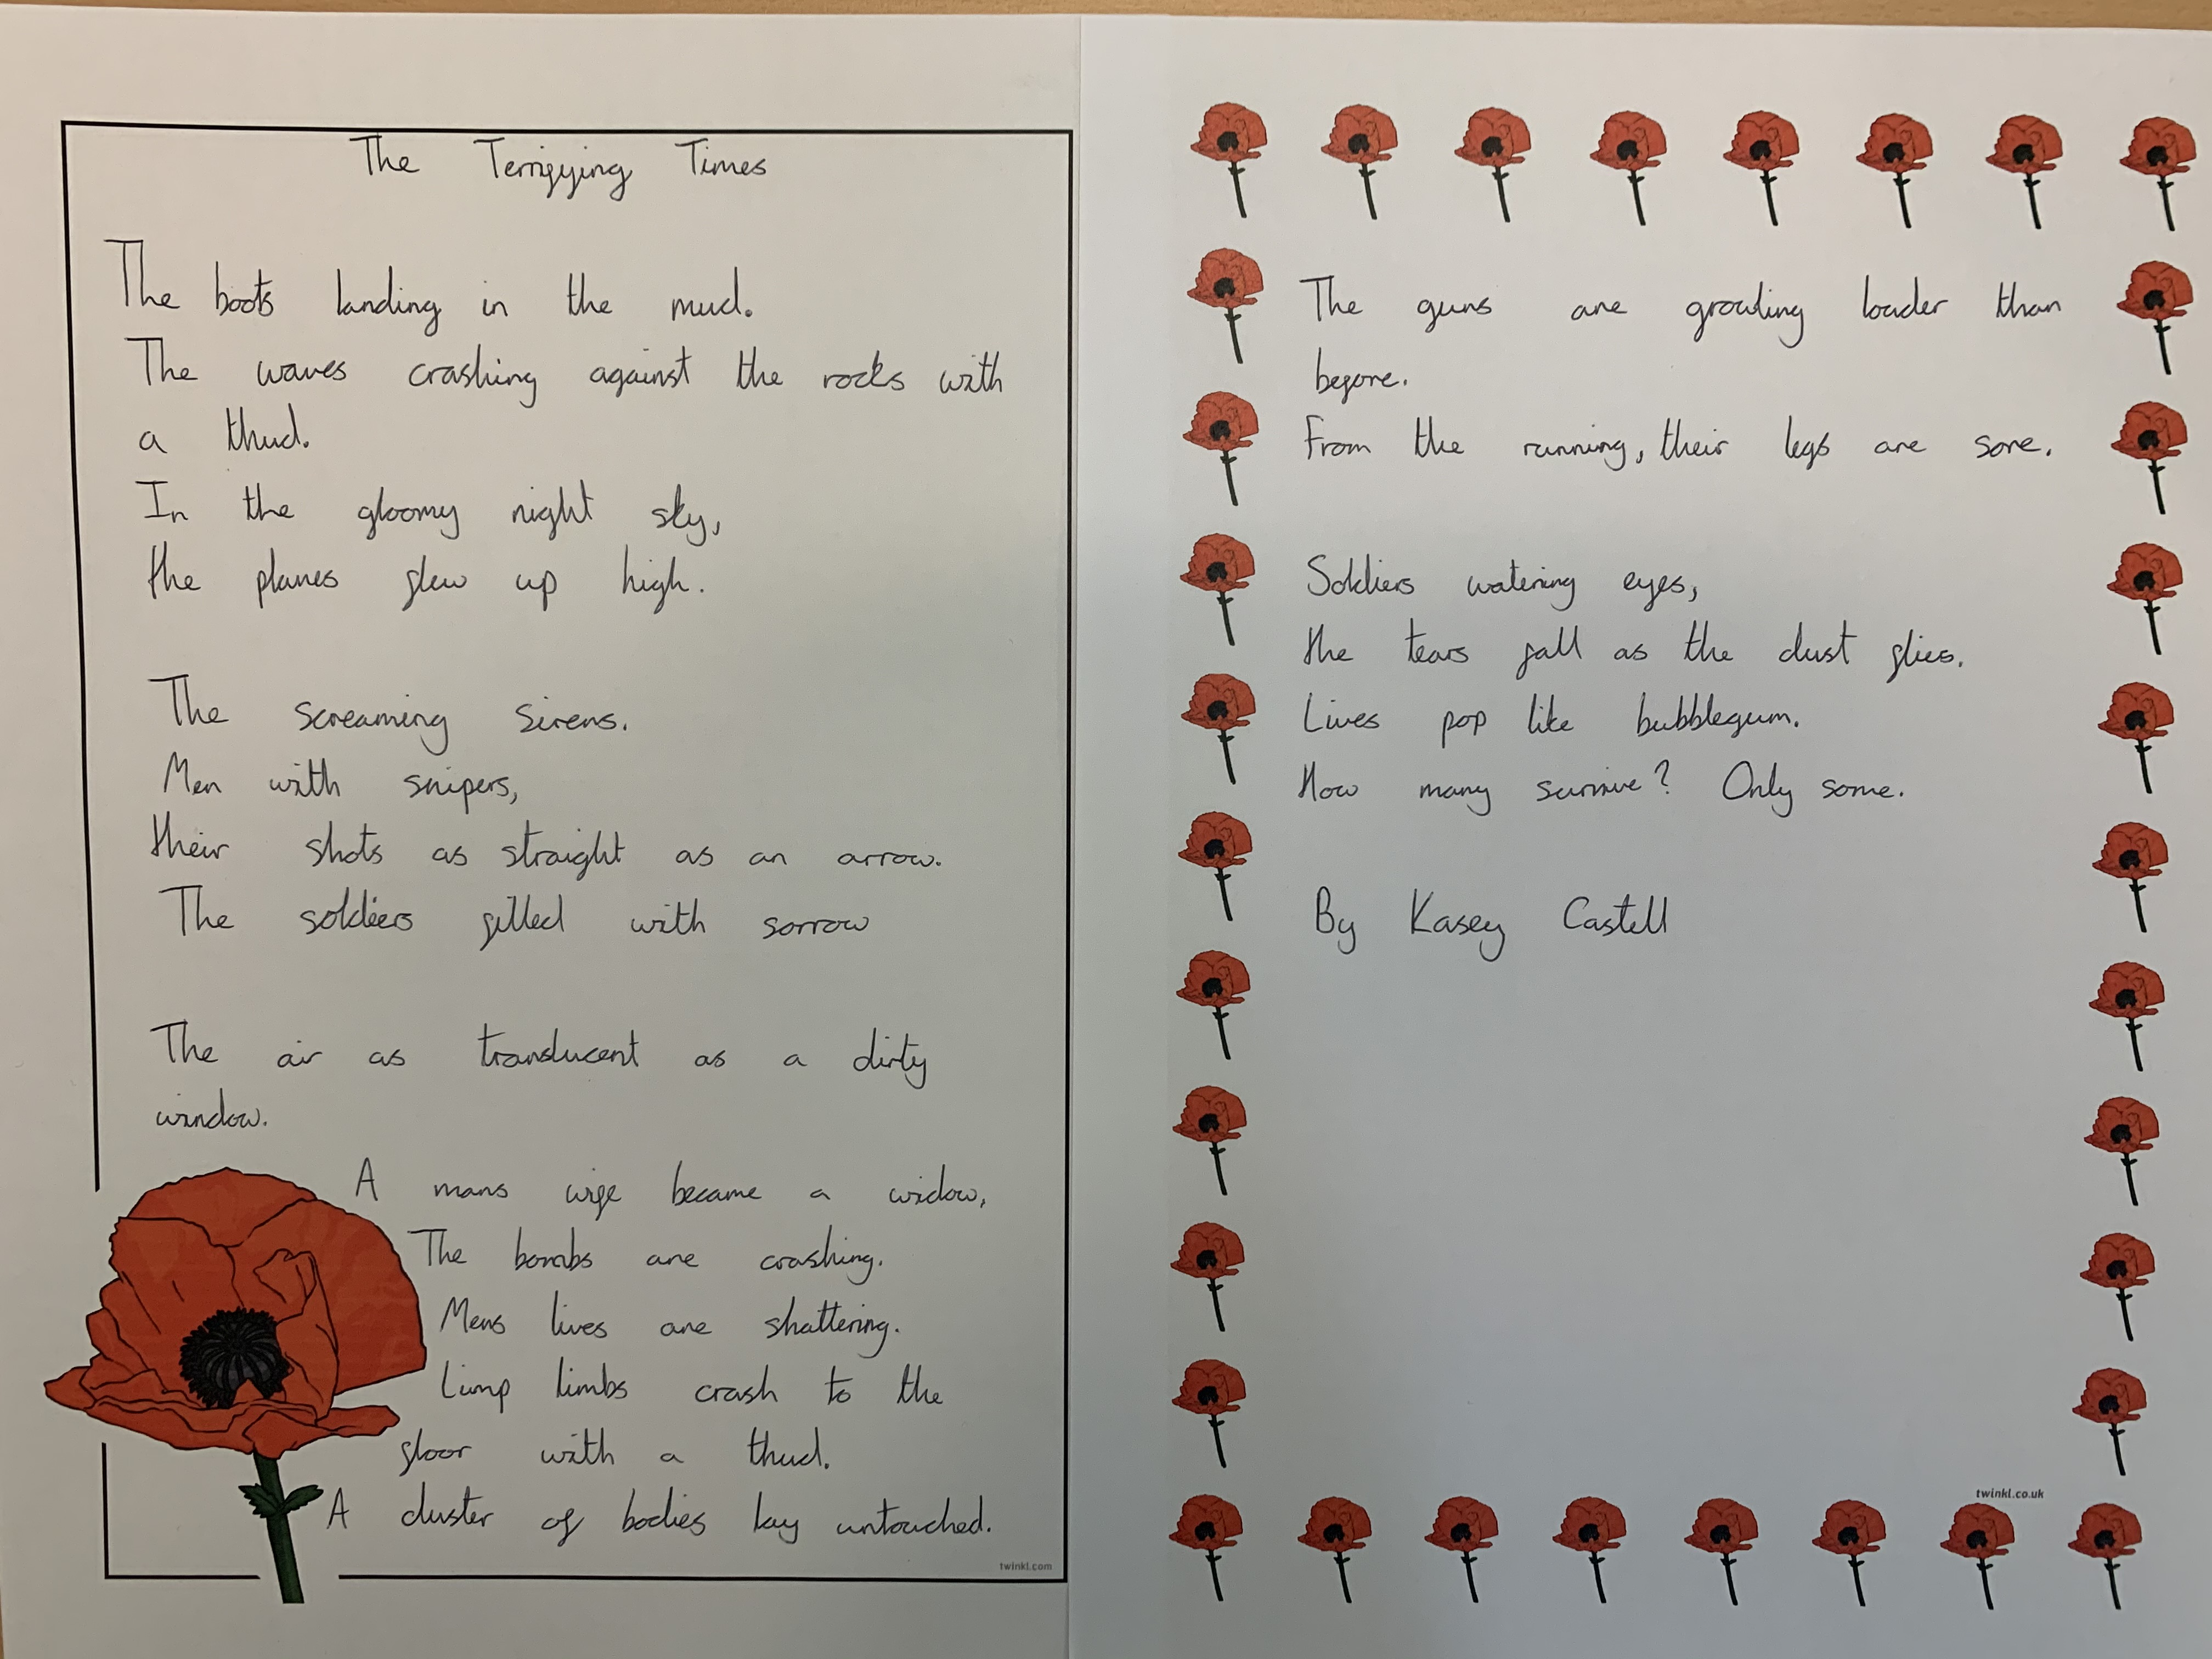 The Terrifying Times
The boots landing in the mud.
The waves crashing against the rocks with
a thud.
In the gloomy night sky,
the planes flew up high.
The screaming sirens.
Men with snipers,
their shots as straight as an arrow.
The soldiers filled with sorrow
The air as translucent as a dirty
window.
A mans wife became a widow,
The bombs are crashing.
Mens lives are shattering.
Limp limbs crash to the
floor with a thud.
A cluster of bodies lay untouched.
twinkl.com
The guns are growling louder than
before.
From the running, their legs are sore.
Soldiers watering eyes,
the tears fall as the dust flies.
Lives pop like bubblegum.
How many survive? Only some.
By Kasey Castell
twinkl.co.uk